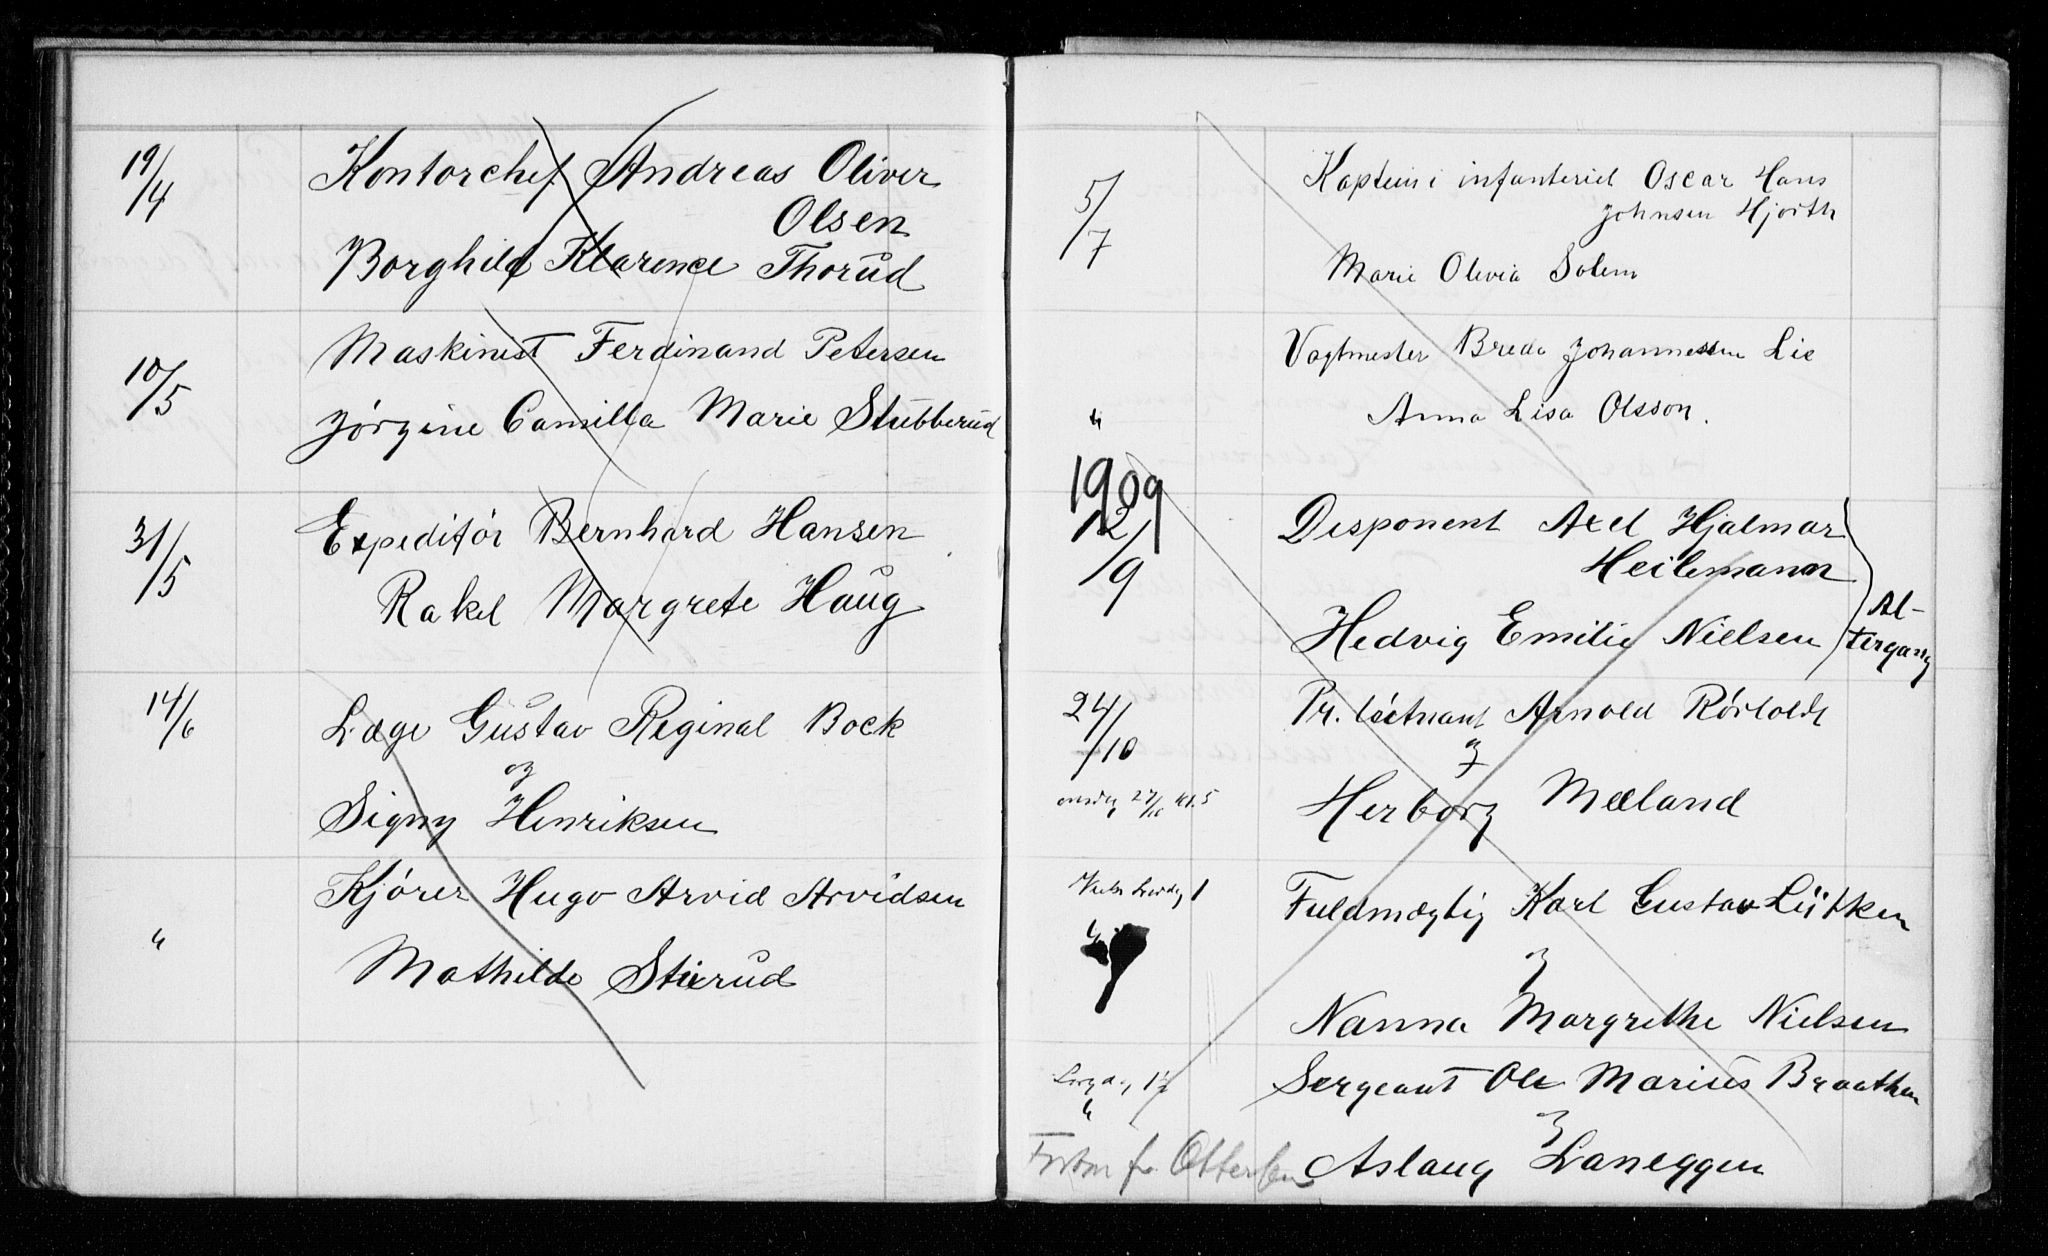 19/4 Kontorchef Andreas Oliver
Olsen
Borghild Klarence Thorud
10/5 Maskinist Ferdinand Petersen
Jörgine Camilla Marie Stubberud
31/5 Expeditör Bernhard Hansen
Rakel Margrete Haug
14/6 Læge Gustav Reginal Bock
og
Signy Henriksen
" Kjörer Hugo Arvid Arvidsen
Mathilde Stierud
5/7 Kaptein i infanteriet Oscar Hans
Johnsen Hjorth
Marie Olivia Solem
Vagtmester Brede Johannessen Lie
" Anna Lisa Olsson.
1909
12/9 Disponent Axel Hjalmar
Heilemann
Hedvig Emilie Nielsen
Al-
tergang
24/10 Pr. löitnant Arnold Rörholdt
og
onsdag 27/10 kl. 5 Herborg Mæland
Fuldmægtig Karl Gustav Lütken
og
Nanna Margrethe Nielsen
Sergeant Ole Marius Braathen
"
og
Aslaug Laneggen